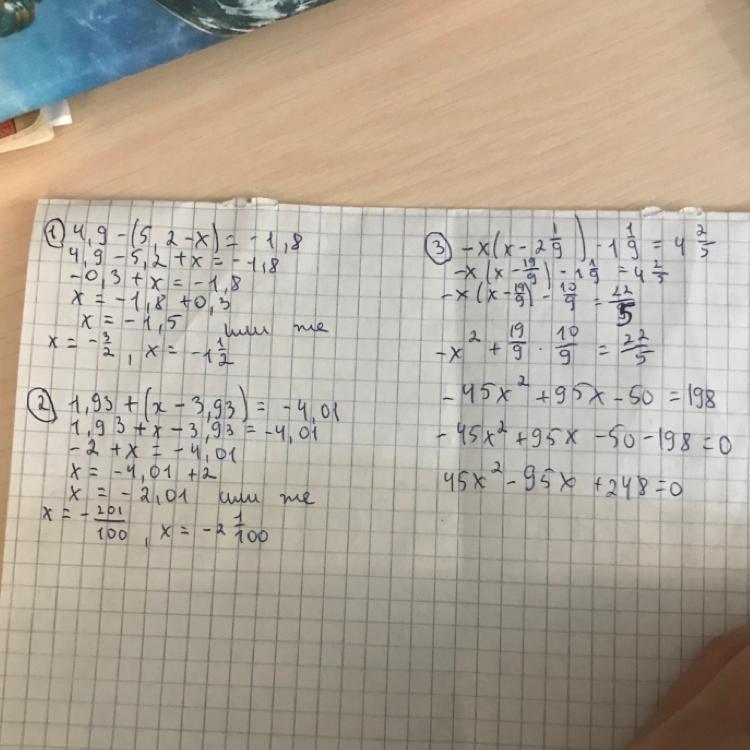 ① 4,9-(5,2-x)=-1,8
4,9-5,2+x=-1,8
-0,3+x=-1,8
x=-1,8+0,3
x=-1,5 или же
x=-3/2, x=-1 1/2
② 1,93+(x-3,93)=-4,01
1,93+x-3,93=-4,01
-2+x=-4,01
x=-4,01+2
x=-2,01 или же
x=-201/100, x=-2 1/100
③ -x(x-2 1/9)-1 1/9=4 2/5
-x(x-19/9)-1 1/9=4 2/5
-x(x-19/9)-10/9=22/5
-x²+19/9·10/9=22/5
-45x²+95x-50=198
-45x²+95x-50-198=0
45x²-95x+248=0